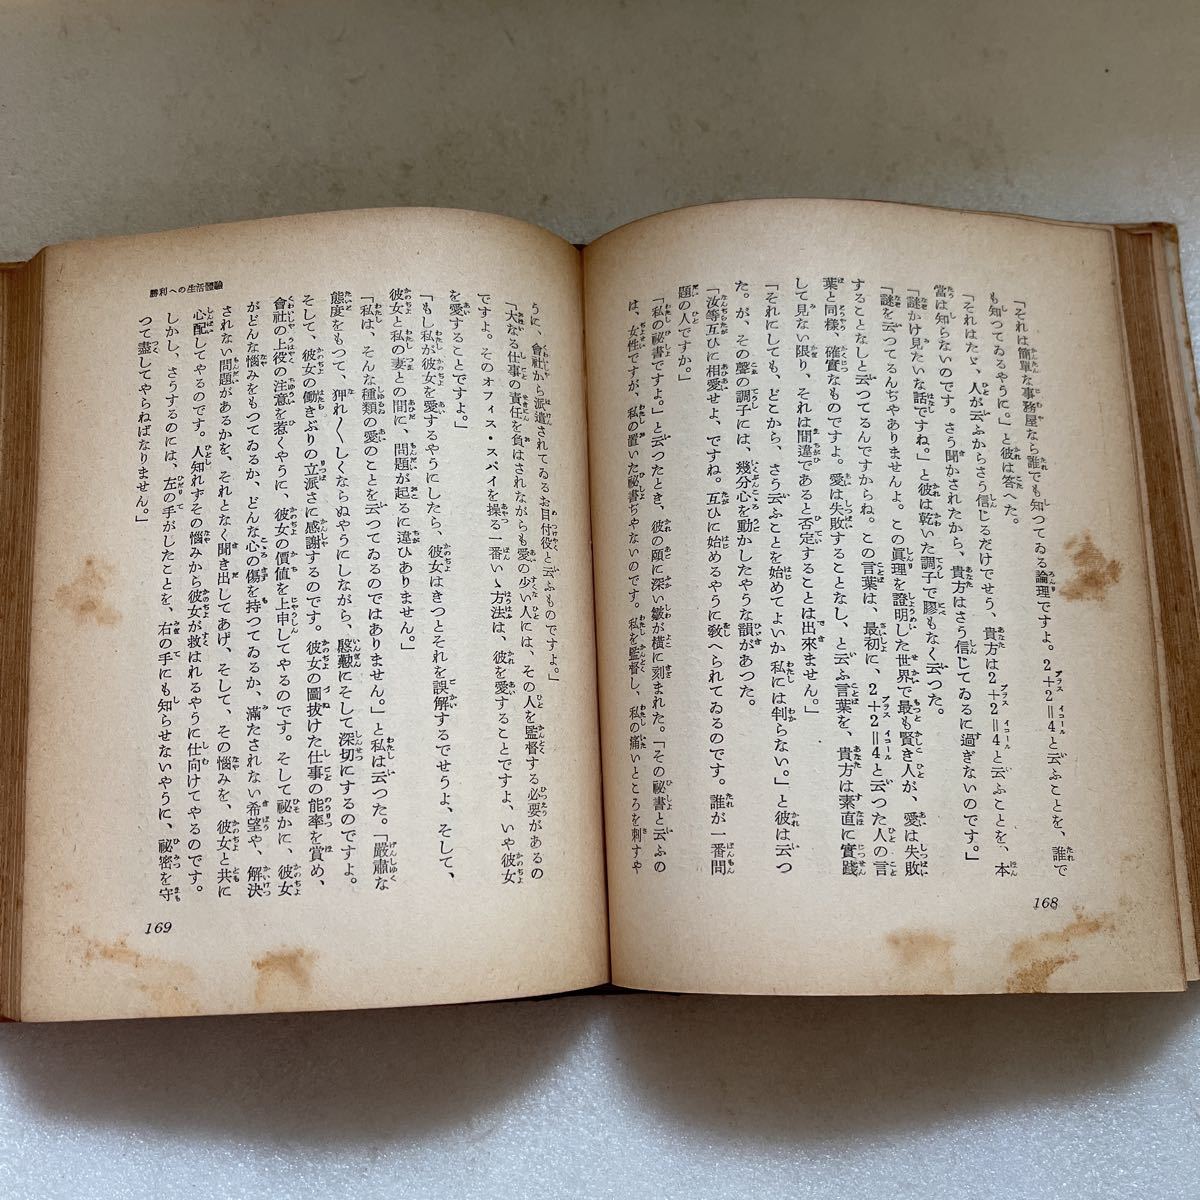 「それは簡單な事務屋なら誰でも知つてゐる論理ですよ。2+2=4と云ふことを、誰で
も知つてゐるやうに。」と彼は答へた。
「それはたゞ、人が云ふからさう信じるだけでせう、貴方は2+2=4と云ふことを、本
當は知らないのです。さう聞かされたから、貴方はさう信じてゐるに過ぎないのです。」
「謎かけ見たいな話ですね。」と彼は乾いた調子で膠もなく云つた。
「謎を云つてるんぢやありませんよ。この眞理を證明した世界で最も賢き人が、愛は失敗
することなしと云つてるんですからね。この言葉は、最初に、2+2=4と云つた人の言
葉と同樣、確實なものですよ。愛は失敗することなし、と云ふ言葉を、貴方は素直に實踐
して見ない限り、それは間違であると否定することは出來ません。」
「それにしても、どこから、さう云ふことを始めてよいか私には判らない。」と彼は云つ
た。が、その聲の調子には、幾分心を動かしたやうな韻があつた。
「汝等互ひに相愛せよ、ですね。互ひに始めるやうに敎へられてゐるのです。誰が一番問
題の人ですか。」
「私の秘書ですよ。」と云つたとき、彼の額に深い皺が橫に刻まれた。「その秘書と云ふの
は、女性ですが、私の置いた秘書ぢやないのです。私を監督し、私の痛いところを刺すや
168
うに、會社から派遣されてゐるお目付役と云ふものですよ。」
「大なる仕事の責任を負はされながらも愛の少い人には、その人を監督する必要があるの
ですよ。そのオフィス・スパイを操る一番いゝ方法は、彼を愛することですよ、いや彼女
を愛することですよ。」
「もし私が彼女を愛するやうにしたら、彼女はきつとそれを誤解するでせうよ、そして、
彼女と私の妻との間に、問題が起るに違ひありません。」
「私は、そんな種類の愛のことを云つてゐるのではありません。」と私は云つた。「嚴肅な
態度をもつて、狎れ〳〵しくならぬやうにしながら、慇懃にそして深切にするのですよ。
そして、彼女の働きぶりの立派さに感謝するのです。彼女の圖拔けた仕事の能率を賞め、
會社の上役の注意を惹くやうに、彼女の價値を上申してやるのです。そして祕かに、彼女
がどんな惱みをもつてゐるか、どんな心の傷を持つてゐるか、滿たされない希望や、解決
されない問題があるかを、それとなく聞き出してあげ、そして、その惱みを、彼女と共に
心配してやるのです。人知れずその惱みから彼女が救はれるやうに仕向けてやるのです。
しかし、さうするのには、左の手がしたことを、右の手にも知らせないやうに、祕密を守
つて盡してやらねばなりません。」
勝利への生活體驗
169